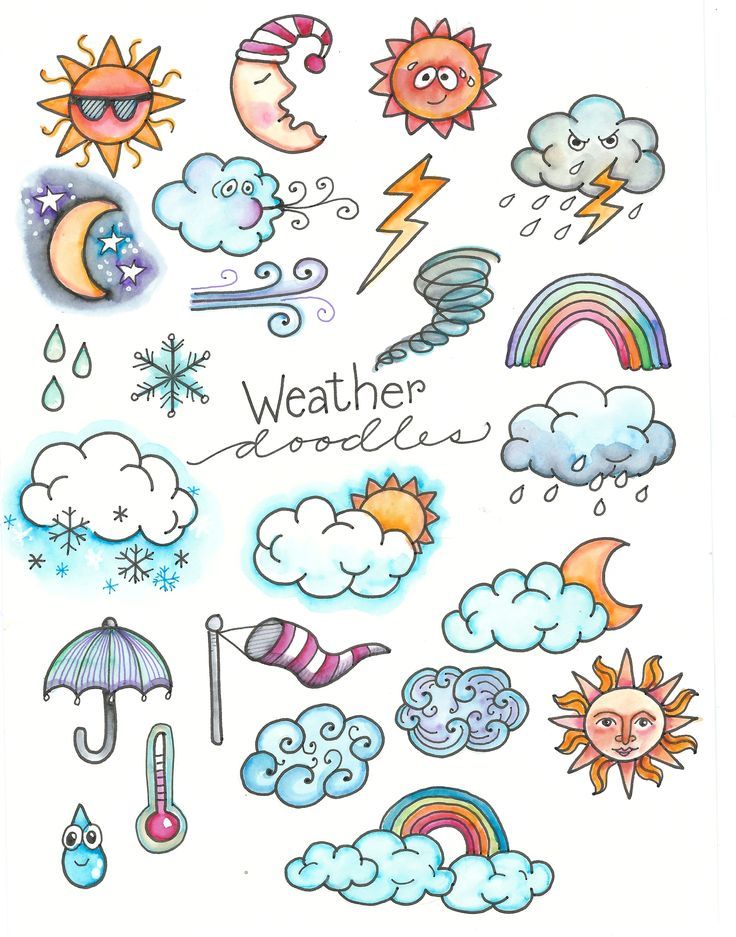 Weather
doodles